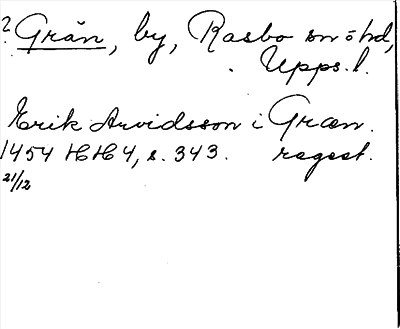 ? Grån, by, Rasbo sn o hd,
Upps. l.
Erik Arvidsson i Græn.
1454 HH 4, s. 343. regest.
21/12